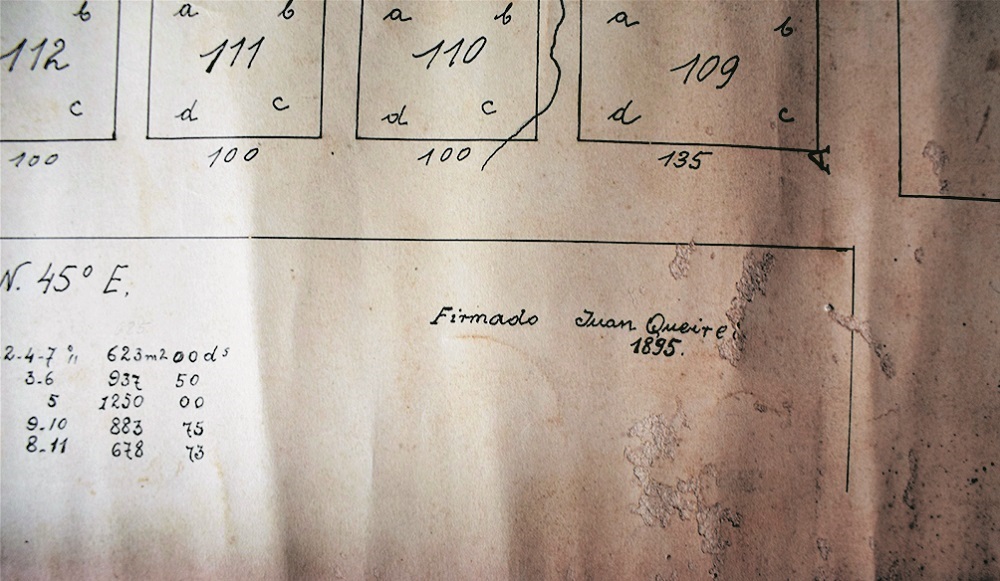 b a b a b a b
112 111 110 109
c d c d c d c
100 100 100 135
A
N. 45° E.
Firmado Juan Queire
1895.
2-4-7 623m2 00 ds
3.6 937 50
5 1250 00
9.10 883 75
8.11 678 73